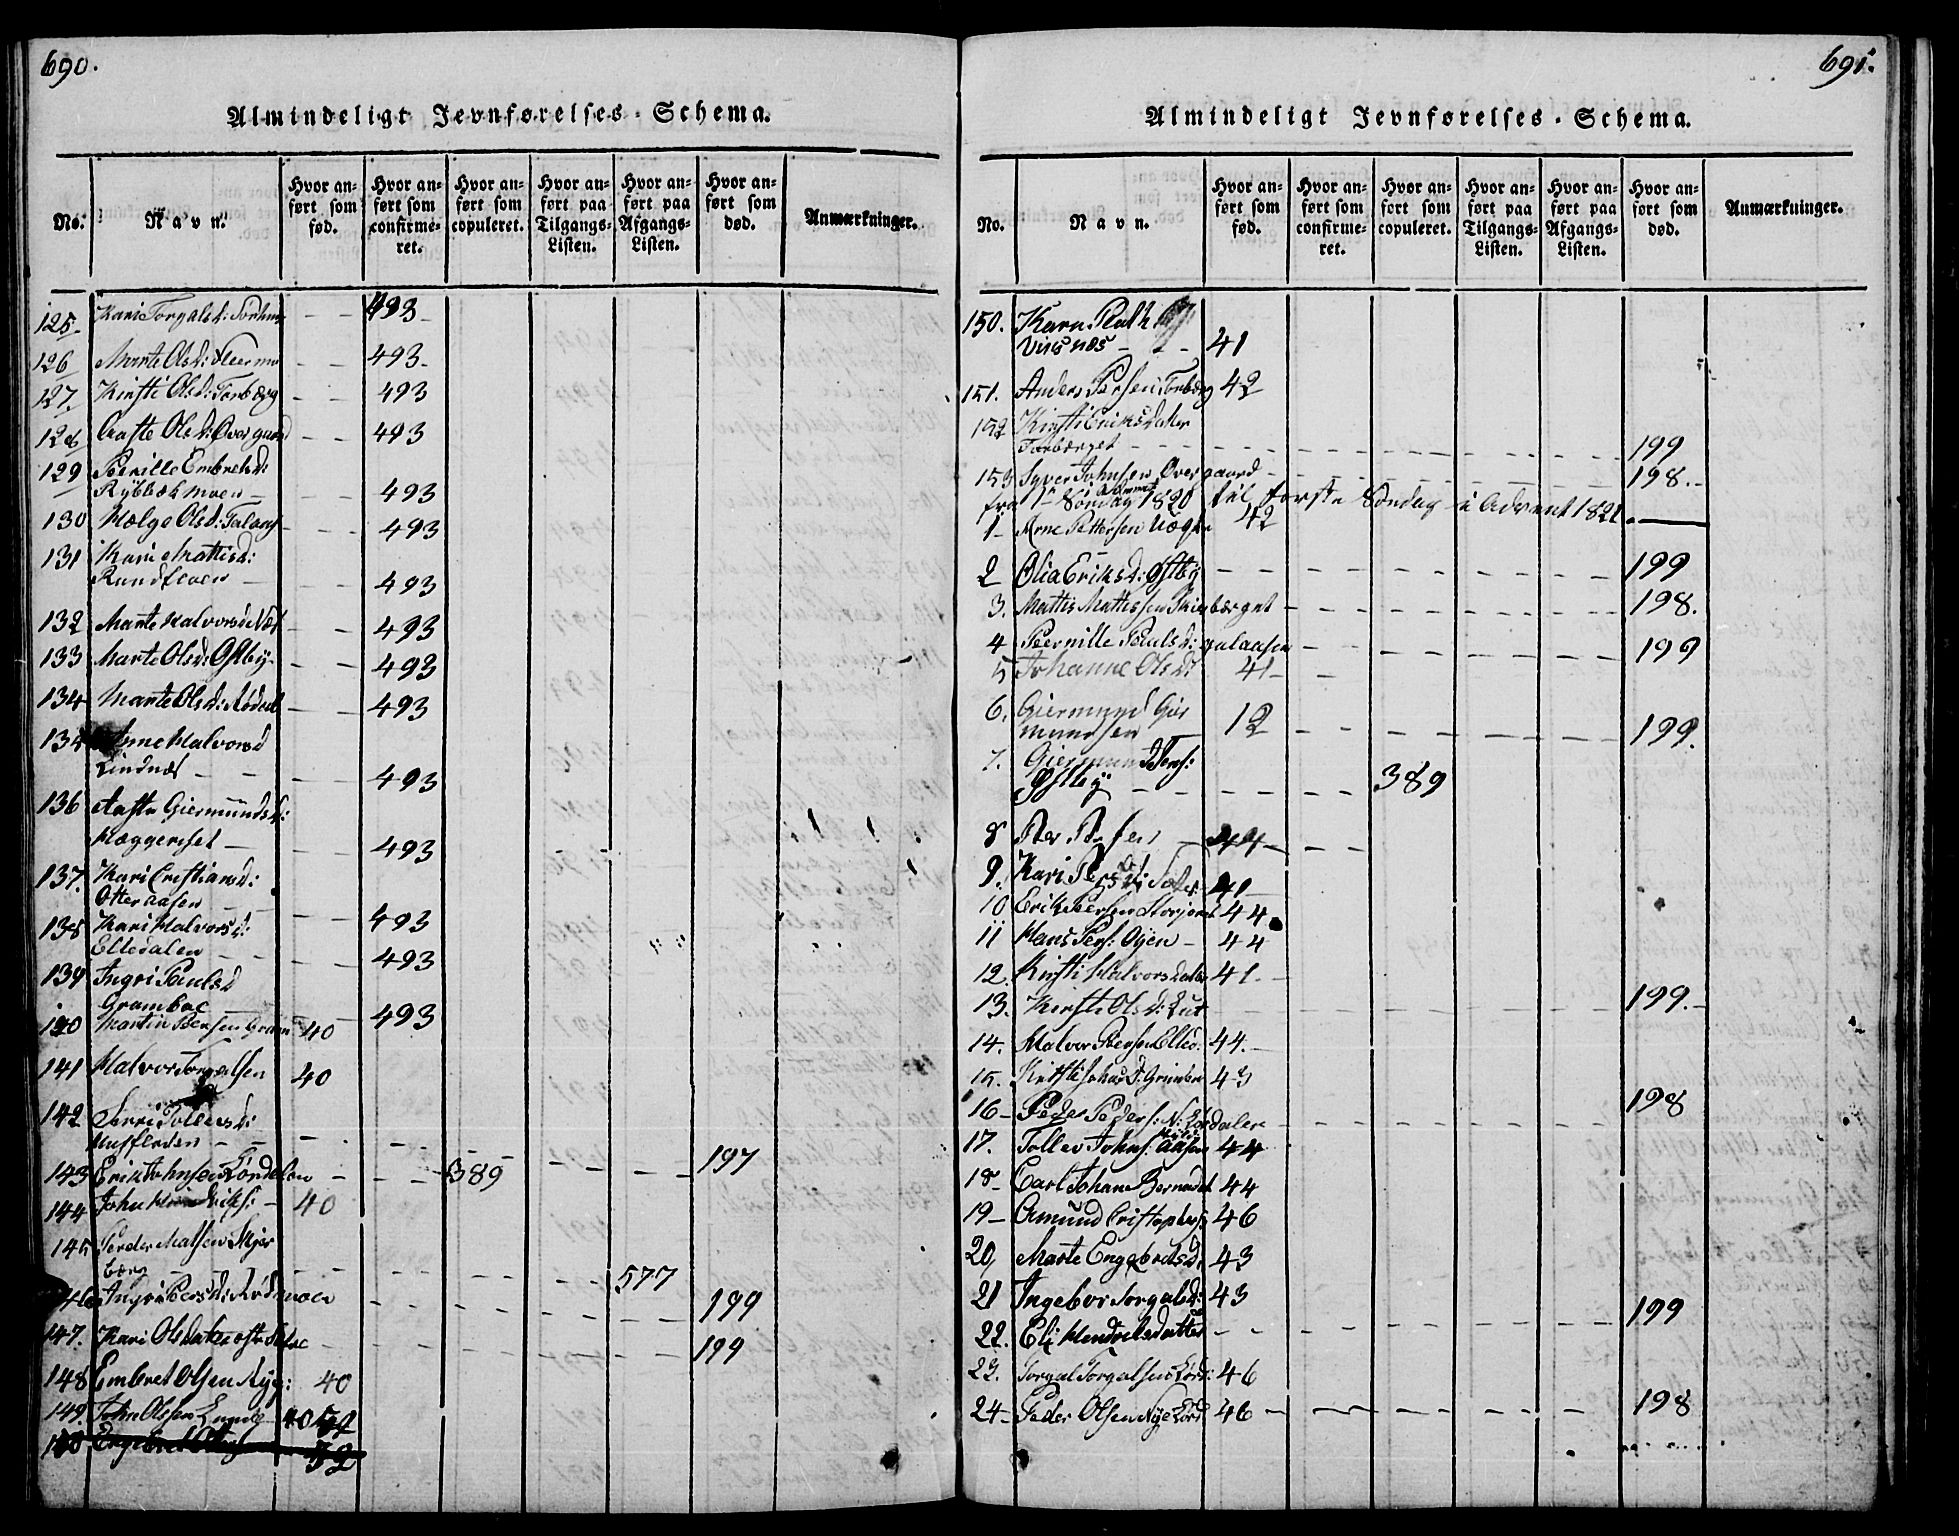 690.
Almindeligt Jevnførelses-Schema.
No. Navn. Hvor anført som fød. Hvor anført som confirmeret. Hvor anført som copuleret. Hvor anført paa Tilgangs-Listen. Hvor anført paa Afgangs-Listen. Hvor anført som død. Anmærkninger.
125. Kari Torgalsd: 493
126 Marte Olsd: 493
127. Kirsti Olsd: Torbærg 493
128 Olsd: Overgaard 493
129 Pernille Embretsd:
Rybbækmoen 493
130 Helge Olsd: 493
131 Kari Mattisd:
Rundfloen 493
132 Marte Halvorsd: Næs 493
133 Marte Olsd: Østby 493
134 Marte Olsd: Röd 493
134 Arne Halvorsd
Lindnæs 493
136 Aaste Giermundsd:
Hæggeriset 493
137. Kari Cristiansd:
Otteraasen 493
138 Kari Halvorsd:
Elledalen 493
139 Ingri Paulsd
Gramboe 493
140 Martin Persen Gram 40
141 Halvor Torgalsen 40
142 Tollevsd:
197
143 Erik Johnsen Lördalen 389
144 John Eriks: 40
145 Peder Matsen Skjær
bærg 577
146 Ingri Persd: Rödmoen 199
147. Kari Olsdatter 199
148 Embret Olsen Ryg: 40
149. John Olsen 40
150 Engebret 52
691.
Almindeligt Jevnførelses-Schema.
No. Navn. Hvor anført som fød. Hvor anført som confirmeret. Hvor anført som copuleret. Hvor anført paa Tilgangs-Listen. Hvor anført paa Afgangs-Listen. Hvor anført som død. Anmærkninger.
150. Karn
Vigsnæs 41
151. Anders Persen Torbærg 42
152 Kirsti Eriksdater
Torbærget 199
153 Syver Johnsen Overgaard 198.
fra 1te Söndag Advent 1820 til förste Söndag i Advent 1821.
1 Arne Pettersen 42
2 Olia Eriksd: Østby 199
3. Mattis Mattissen 198.
4 Pernille Paulsd: 199
5 Johanne Olsd: 41
6. Giermund Gier
mundsen 12 199.
7. Giermund Pers:
Østby 389
8 Per Persen 44
9. Kari Persd: Sæter 41
10 Erik Persen Storjord 44
11 Hans Pers: Öyen 44
12. Kirsti Halvorsdater 41
13. Kirsti Olsd: 199.
14. Halvor Persen Elled: 44.
15. Kirsti Johnsd: 43
16 Peder Peders: N: Lördalen 198
17. Tollev Johns: Aasen 44
18 Carl Johan Bernadot 44
19 Amund Cristophers: 46
20, Marte Engebretsd: 43
21 Ingebor Torgalsd: 43
22. Eli Hendriksdatter 199
23. Torgal Torgalsen Lörd: 46
24 Peder Olsen Nye Lörd 46 198